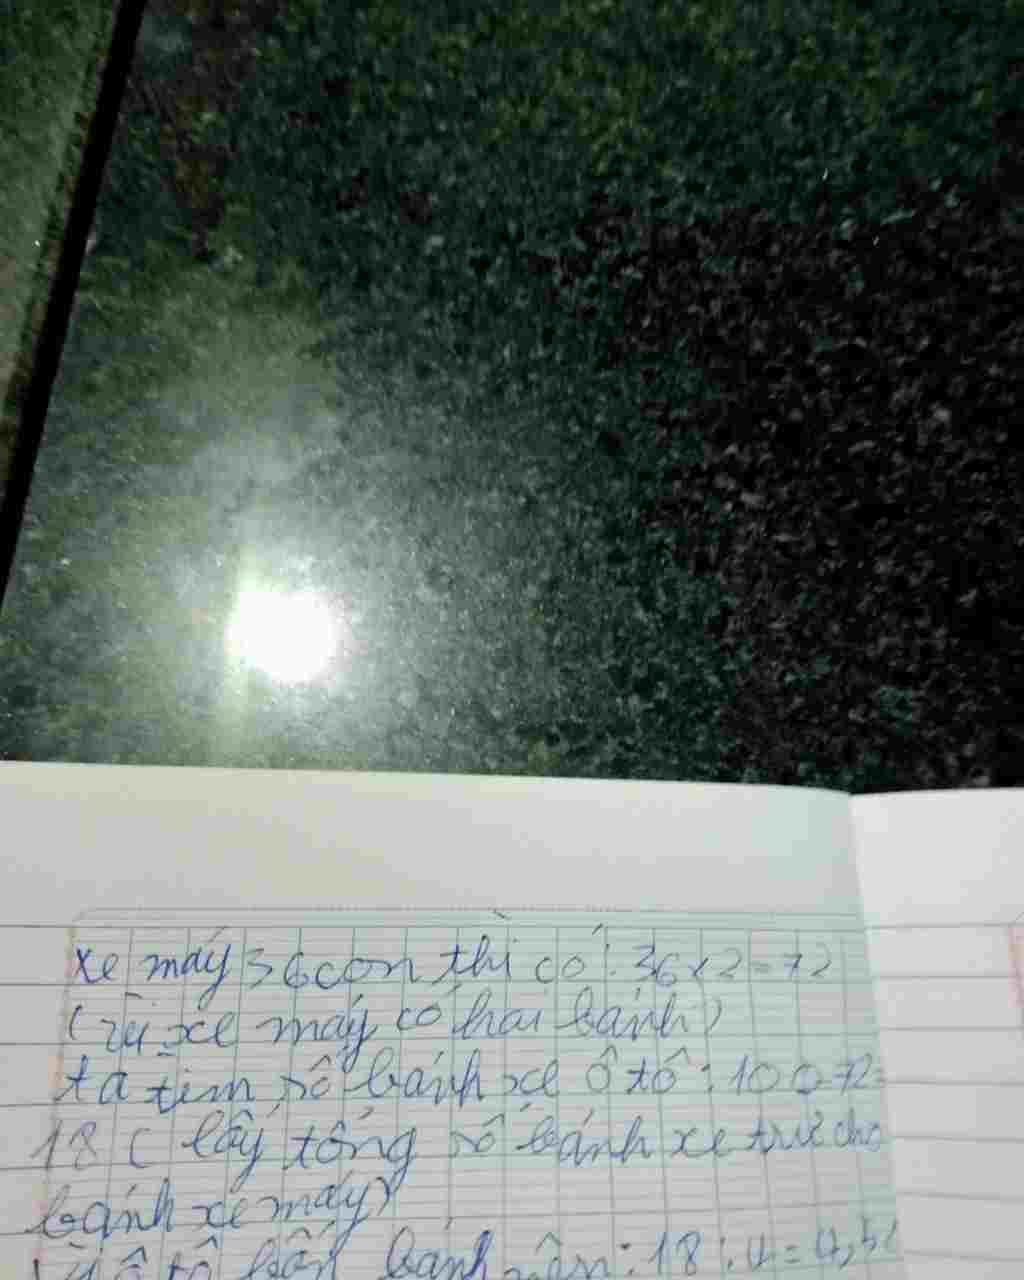 xe máy 36 con thì có : 36 x 2 = 72
(Vì xe máy có hai bánh)
ta tìm số bánh xe ô tô : 100-72=
18 ( lấy tổng số bánh xe trừ cho
bánh xe máy)
Vì ô tô bốn bánh nên : 18 : 4 = 4,5